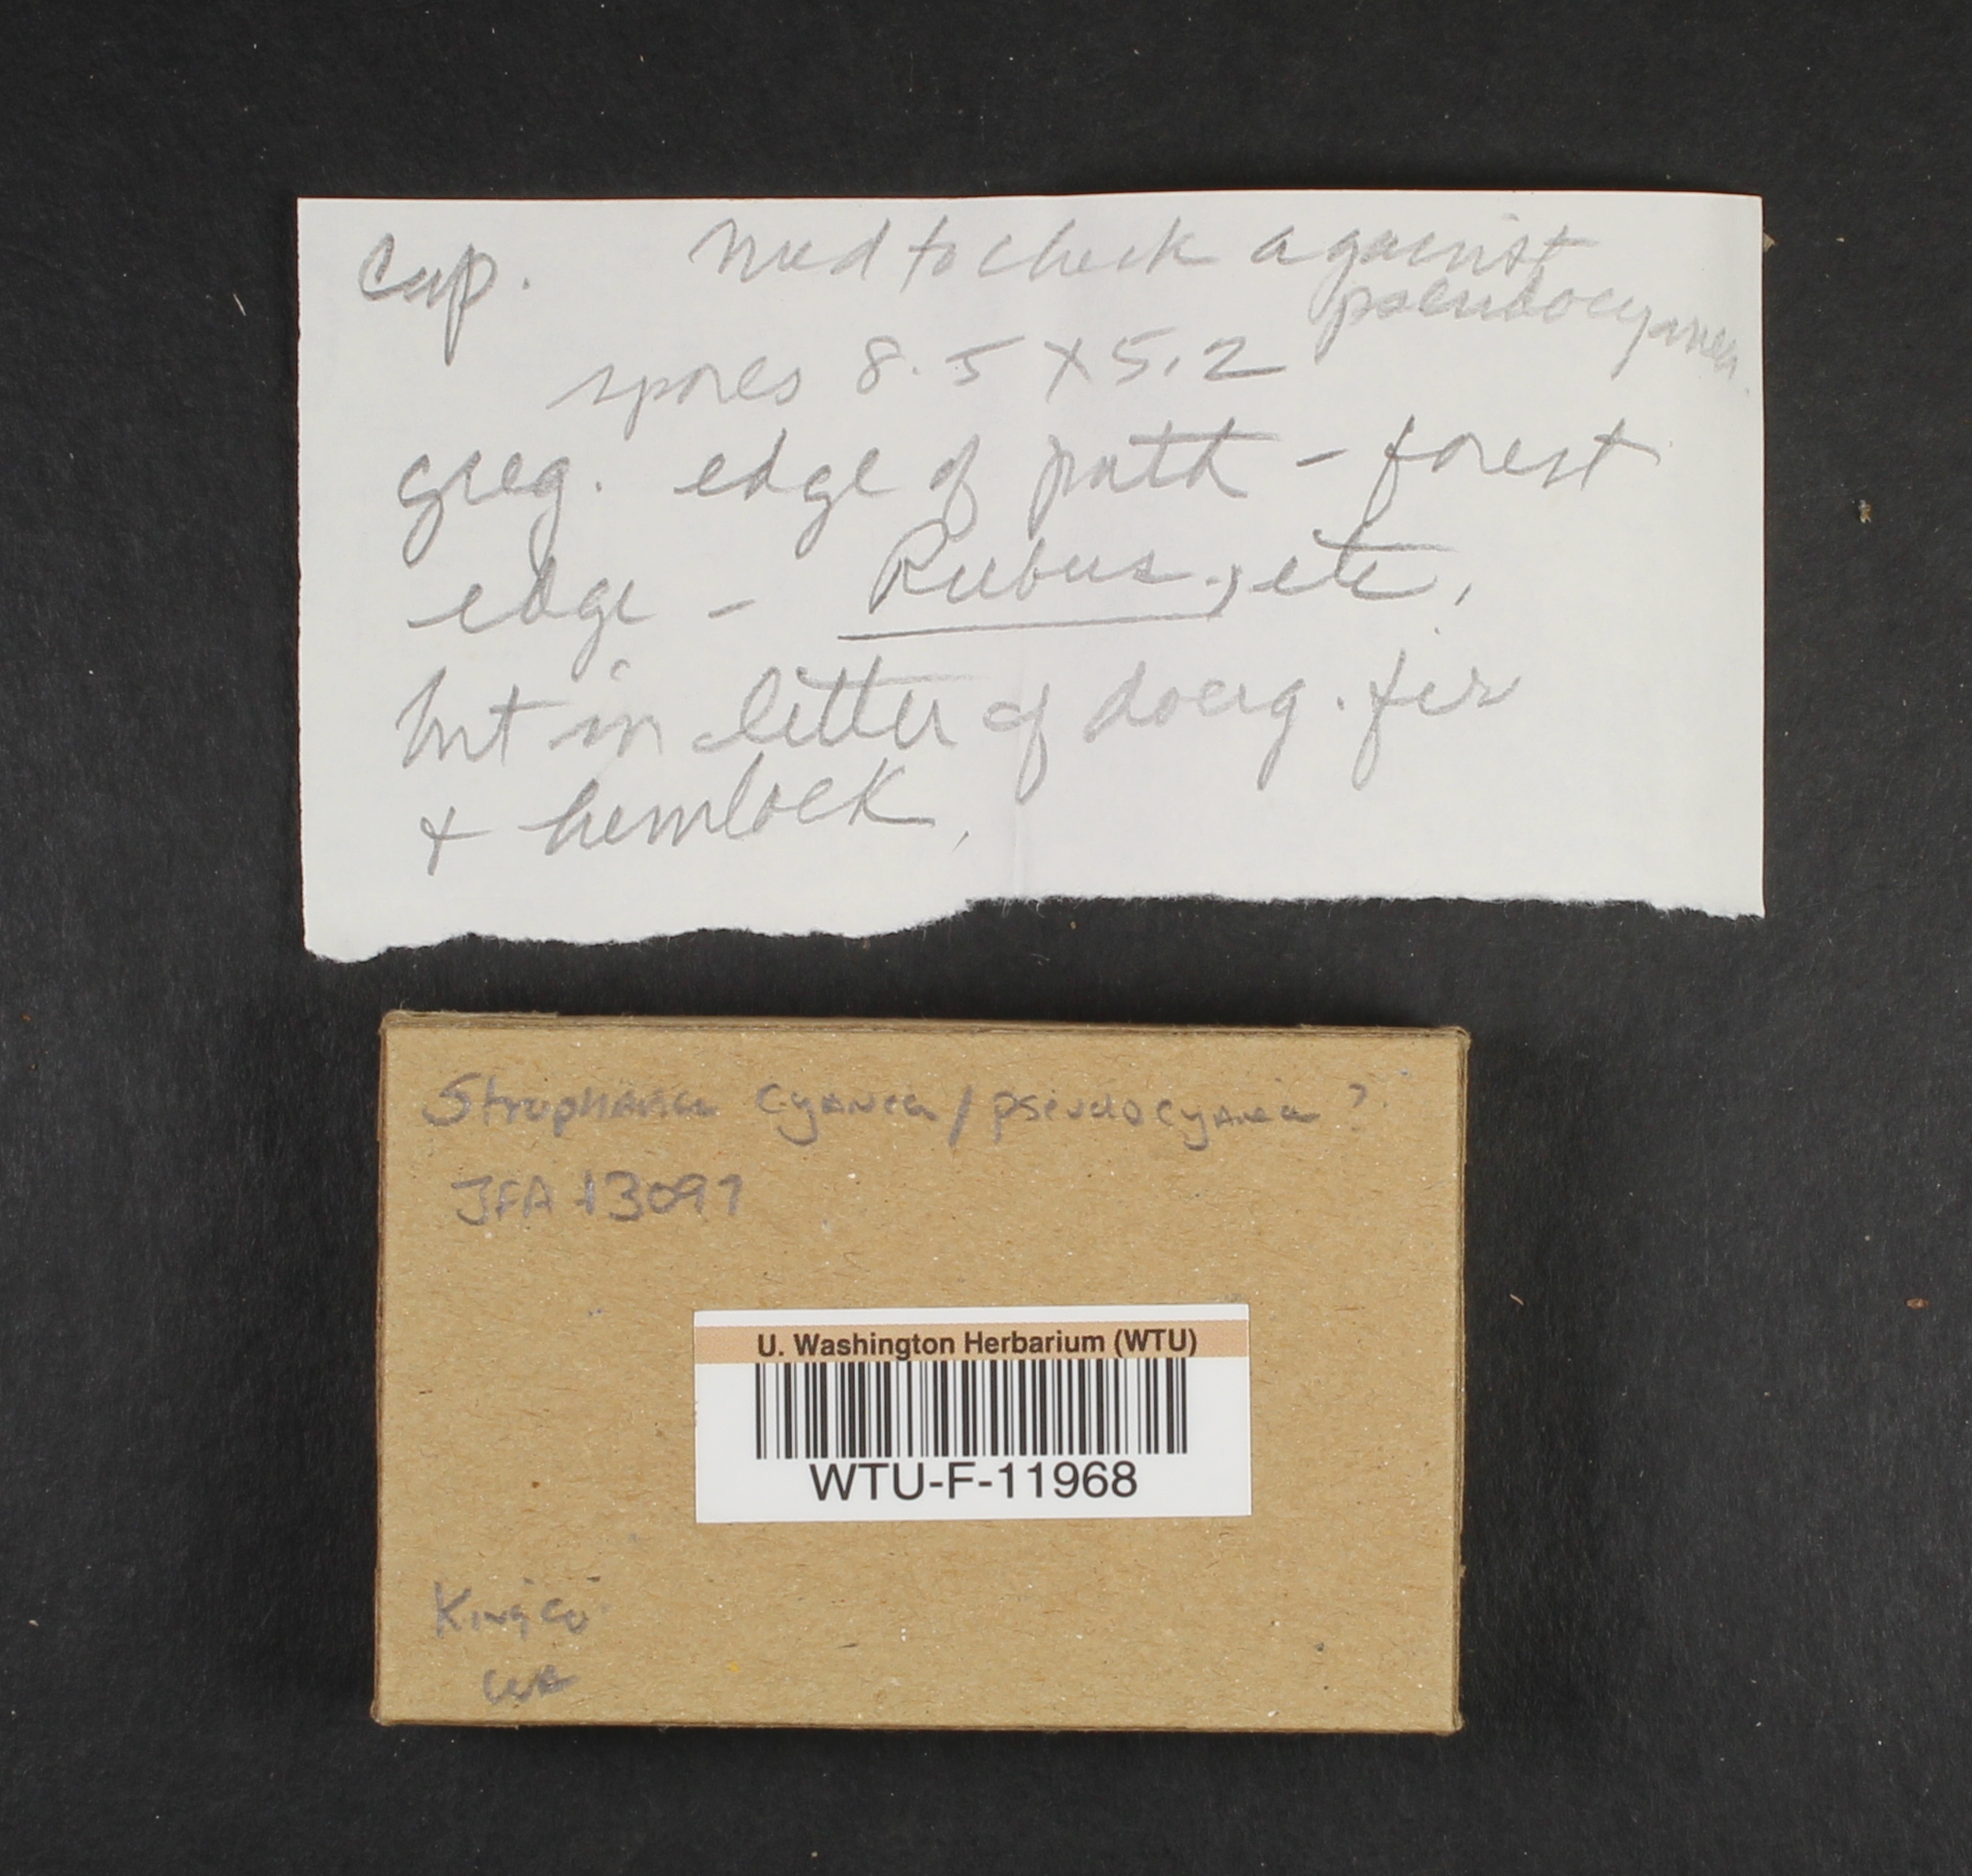 Cap. need to check against
pseudocyanea.
spores 8.5 x 5.2
greg. edge of path - forest
edge - Rubus, etc,
but in litter of doug. fir
+ hemlock,
Stropharia cyanea/pseudocyanea?
JFA 13097
U. Washington Herbarium (WTU)
WTU-F-11968
King Co
WA